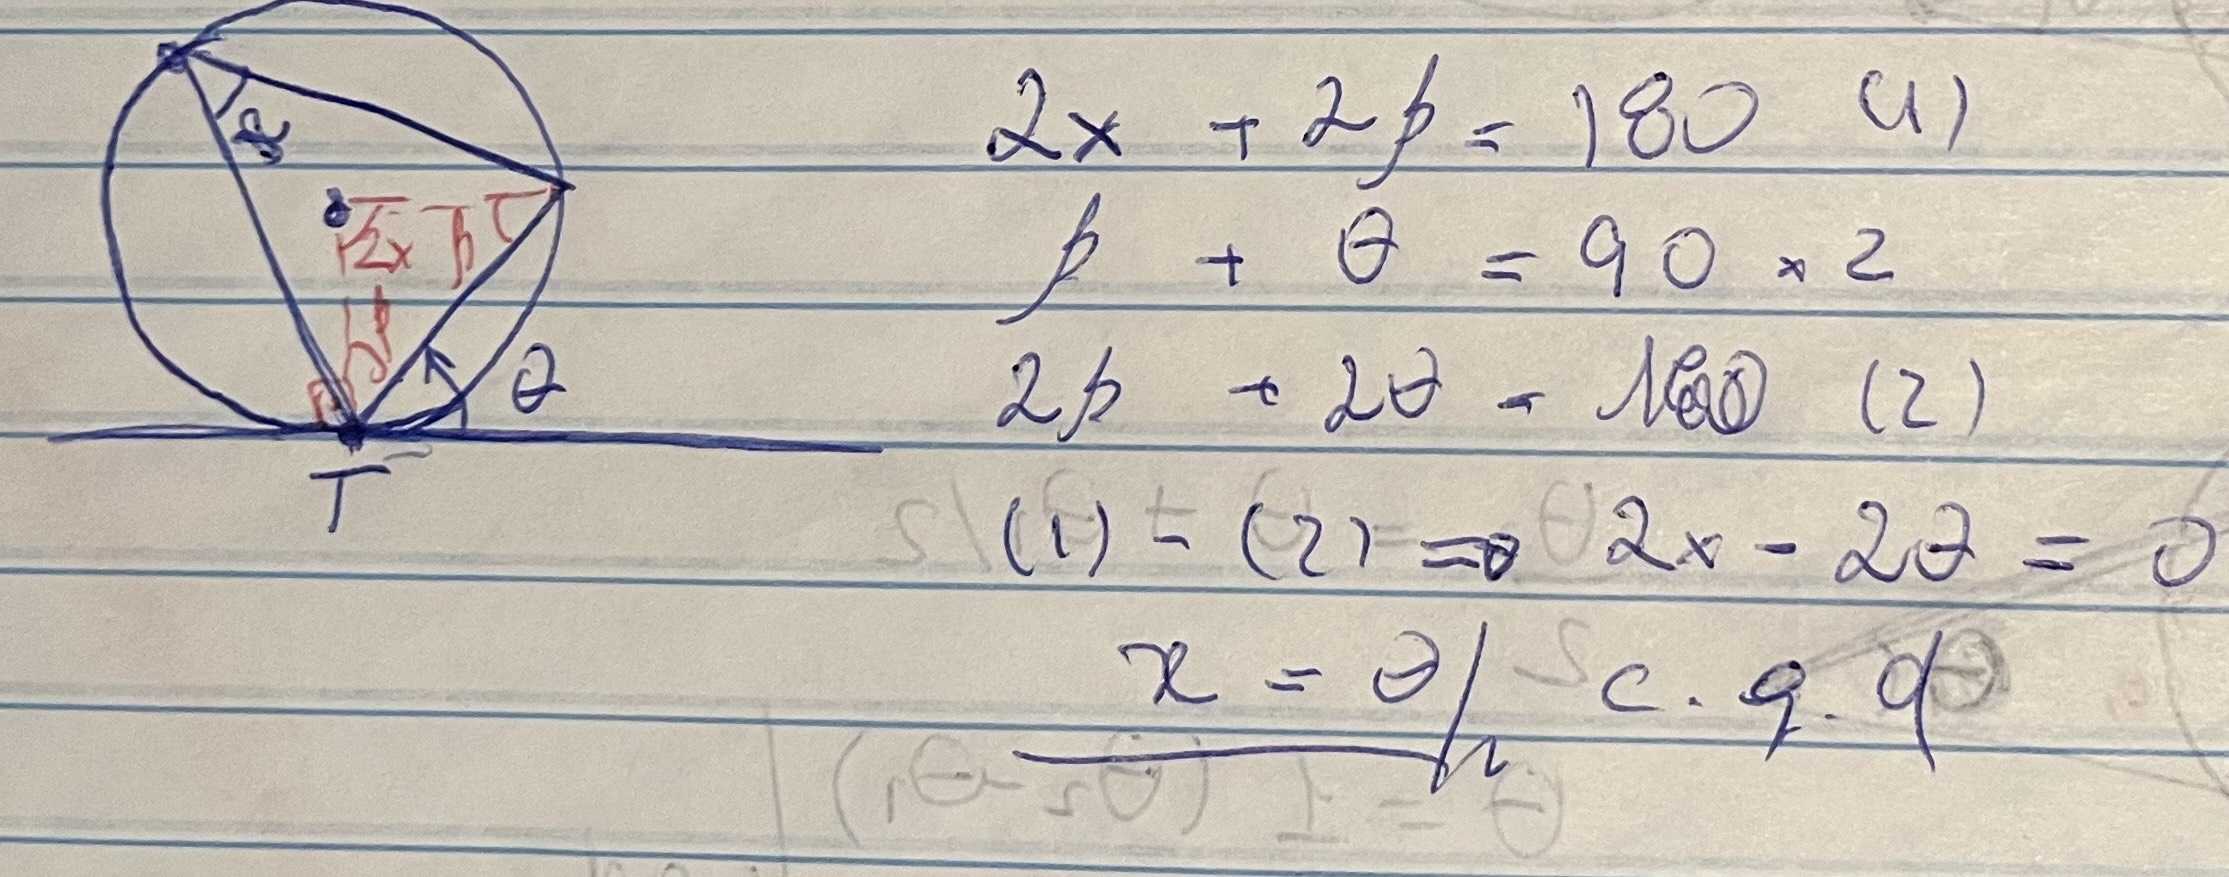 x
2x β
β
θ
T
2x + 2β = 180 (1)
β + θ = 90 × 2
2β + 2θ = 180 (2)
(1) - (2) => 2x - 2θ = 0
x = θ // c.q.d